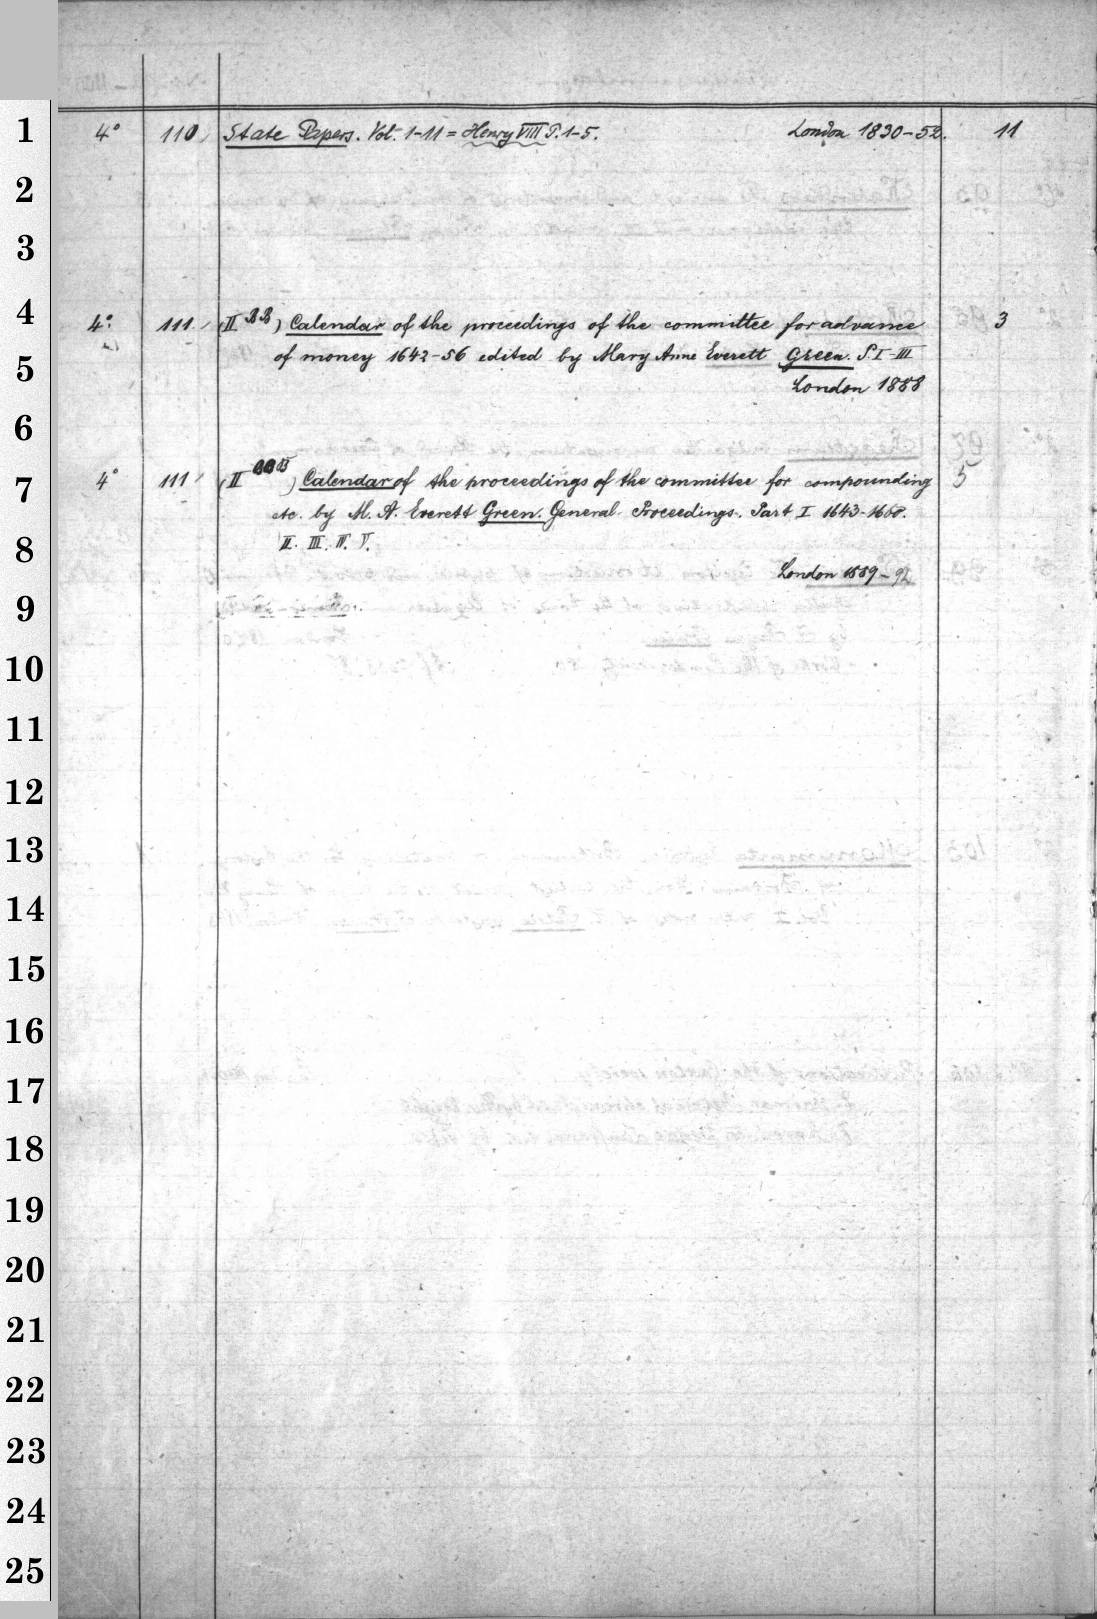 1 4° 110 State Papers. Vol. 1-11 = Henry VIII P. 1-5. London 1830-52. 11
2
3
4 4° 111 (II BB) Calendar of the proceedings of the committee for advance 3
5 of money 1642-56 edited by Mary Anne Everett Green. P. I-III
London 1888
6
7 4° 111 (II) Calendar of the proceedings of the committee for compounding 5
etc. by M. A. Everett Green. General Proceedings. Part I 1643-1660.
8 II. III. IV. V.
London 1889-92
9
10
11
12
13
14
15
16
17
18
19
20
21
22
23
24
25